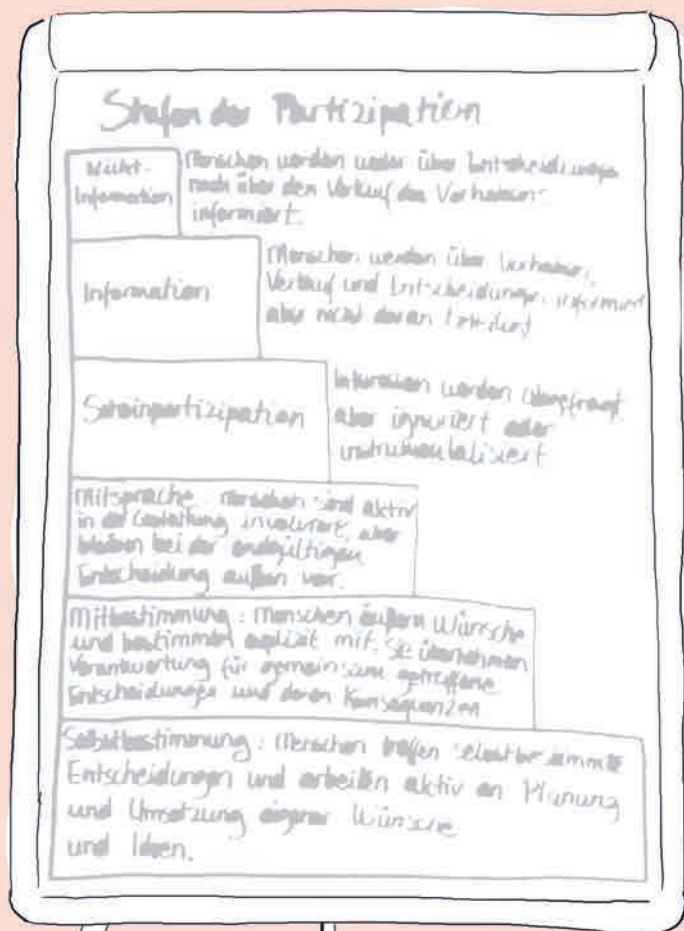 Stufen der Partizipation
Nicht-
Information
Menschen werden weder über Entscheidungen
noch über den Verlauf des Vorhabens
informiert.
Information
Menschen werden über Vorhaben,
Verlauf und Entscheidungen informiert
aber nicht daran beteiligt
Scheinpartizipation
Interessen werden abgefragt,
aber ignoriert oder
instrumentalisiert
Mitsprache: Menschen sind aktiv
in der Gestaltung involviert, aber
bleiben bei der endgültigen
Entscheidung außen vor.
Mitbestimmung: Menschen äußern Wünsche
und bestimmen explizit mit. Sie übernehmen
Verantwortung für gemeinsam getroffene
Entscheidungen und deren Konsequenzen
Selbstbestimmung: Menschen treffen selbstbestimmte
Entscheidungen und arbeiten aktiv an Planung
und Umsetzung eigener Wünsche
und Ideen.